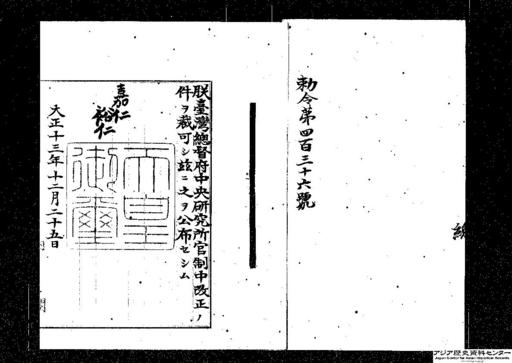 勅令第四百三十六號
朕臺灣總督府中央研究所官制中改正ノ
件ヲ裁可シ玆ニ之ヲ公布セシム
嘉仁
裕仁
天皇
御璽
大正十三年十二月二十五日
アジア歴史資料センター
Japan Center for Asian Historical Records